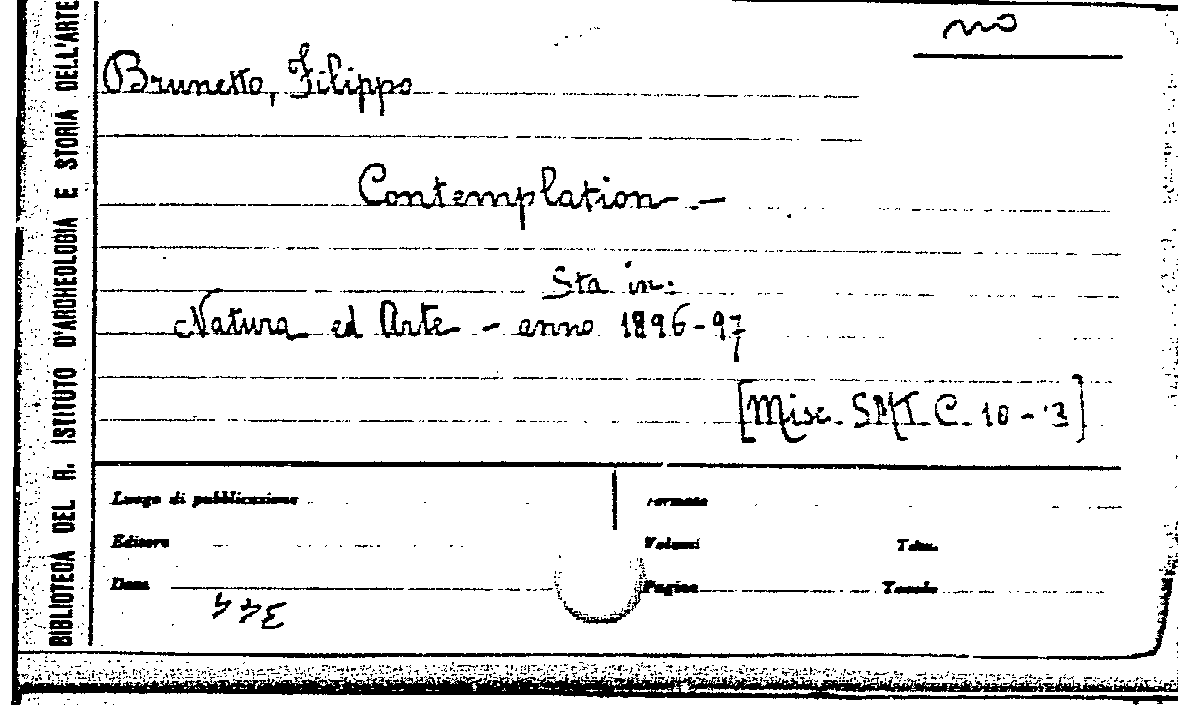 BIBLIOTECA DEL R. ISTITUTO D'ARCHEOLOGIA E STORIA DELL'ARTE
no
Brunetto, Filippo
Contemplation -
Sta in:
Natura ed Arte - anno 1896-97
[Misc. SMI. C. 10 - 13]
Luogo di pubblicazione
Formato
Editore
Volumi
Tom.
Data
Pagine
Tavole
344